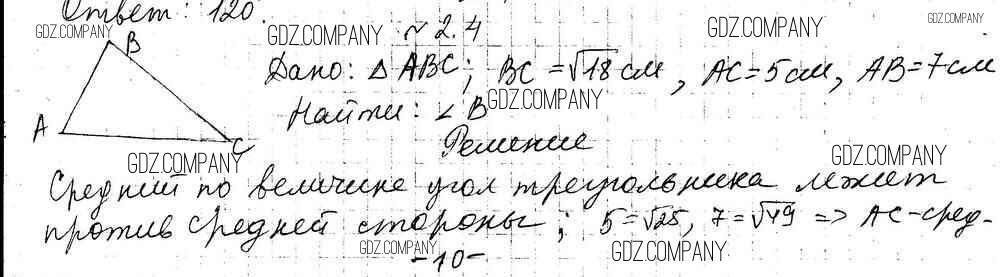 Ответ: 120.
GDZ.COMPANY
GDZ.COMPANY
GDZ.COMPANY
GDZ.COMPANY
№ 2.4
B
Дано: △ ABC; BC = √18 см, AC = 5 см, AB = 7 см
GDZ.COMPANY
Найти: ∠ B
A
C
Решение
GDZ.COMPANY
GDZ.COMPANY
Средний по величине угол треугольника лежит
против средней стороны; 5 = √25, 7 = √49 => AC - сред-
GDZ.COMPANY
GDZ.COMPANY
-10-